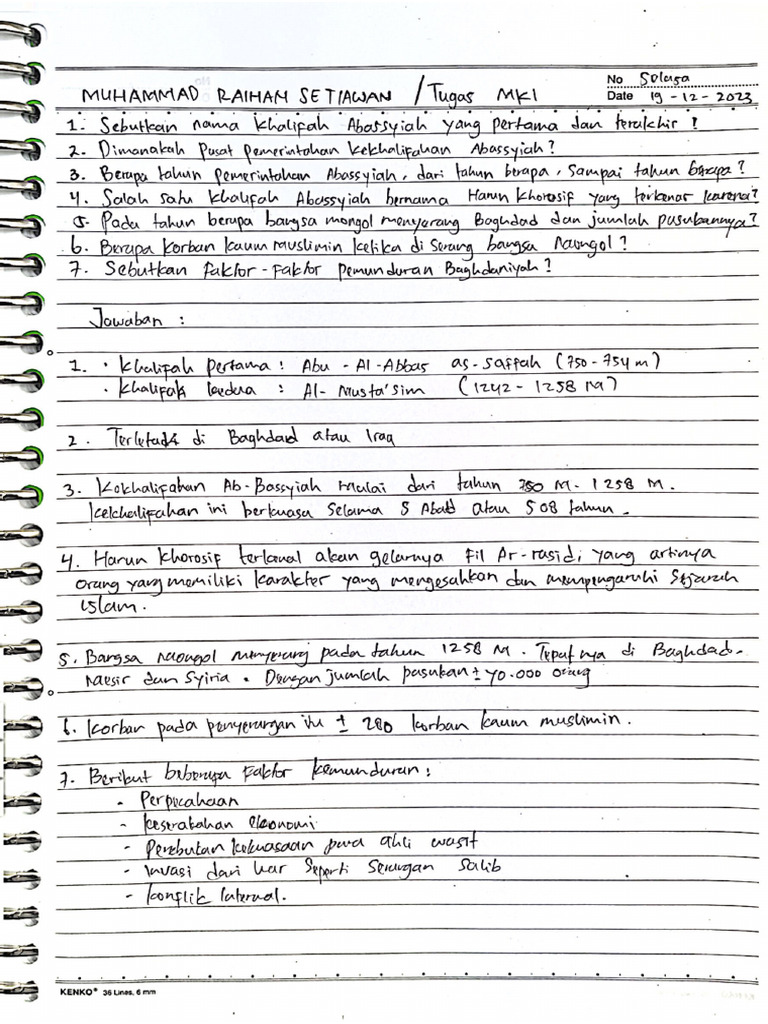 No Selasa
MUHAMMAD RAIHAN SETIAWAN / Tugas MKI Date 19-12-2023
1. Sebutkan nama Khalifah Abassyiah yang pertama dan terakhir !
2. Dimanakah Pusat pemerintahan Kekhalifahan Abassyiah?
3. Berapa tahun pemerintahan Abassyiah, dari tahun berapa, sampai tahun berapa?
4. Salah satu khalifah Abassyiah bernama Harun Khorosif yang terkenar karena?
5. Pada tahun berapa bangsa mongol menyerang Baghdad dan jumlah pasubannya?
6. Berapa Korban kaum muslimin ketika di serang bangsa Mongol?
7. Sebutkan faktor-faktor pemunduran Baghdaniyah?
Jawaban :
1. • Khalifah pertama : Abu - Al-Abbas as-saffah (750-754 m)
• Khalifah kedua : Al- Musta'sim (1242 - 1258 M)
2. Terletak di Baghdad atau Iraq
3. Kekhalifahan Ab-Bassyiah mulai dari tahun 750 M - 1258 M.
Kekhalifahan ini berkuasa Selama 5 Abad atau 508 tahun.
4. Harun Khorosif terkenal akan gelarnya Fil Ar-rasidi, yang artinya
orang yang memiliki karakter yang mengesahkan dan mempengaruhi Sejarah
islam.
5. Bangsa Mongol menyerang pada tahun 1258 M. Tepatnya di Baghdad.
Mesir dan Syiria. Dengan jumlah pasukan ± 40.000 orang
6. Korban pada penyerangan itu ± 280 korban kaum muslimin.
7. Berikut beberapa Faktor kemunduran:
- Perpecahaan
- Keserakahan ekonomi
- Perebutan kekuasaan para ahli wasit
- Invasi dari luar Seperti Serangan Salib
- Konflik Internal.
KENKO® 36 Lines, 6 mm